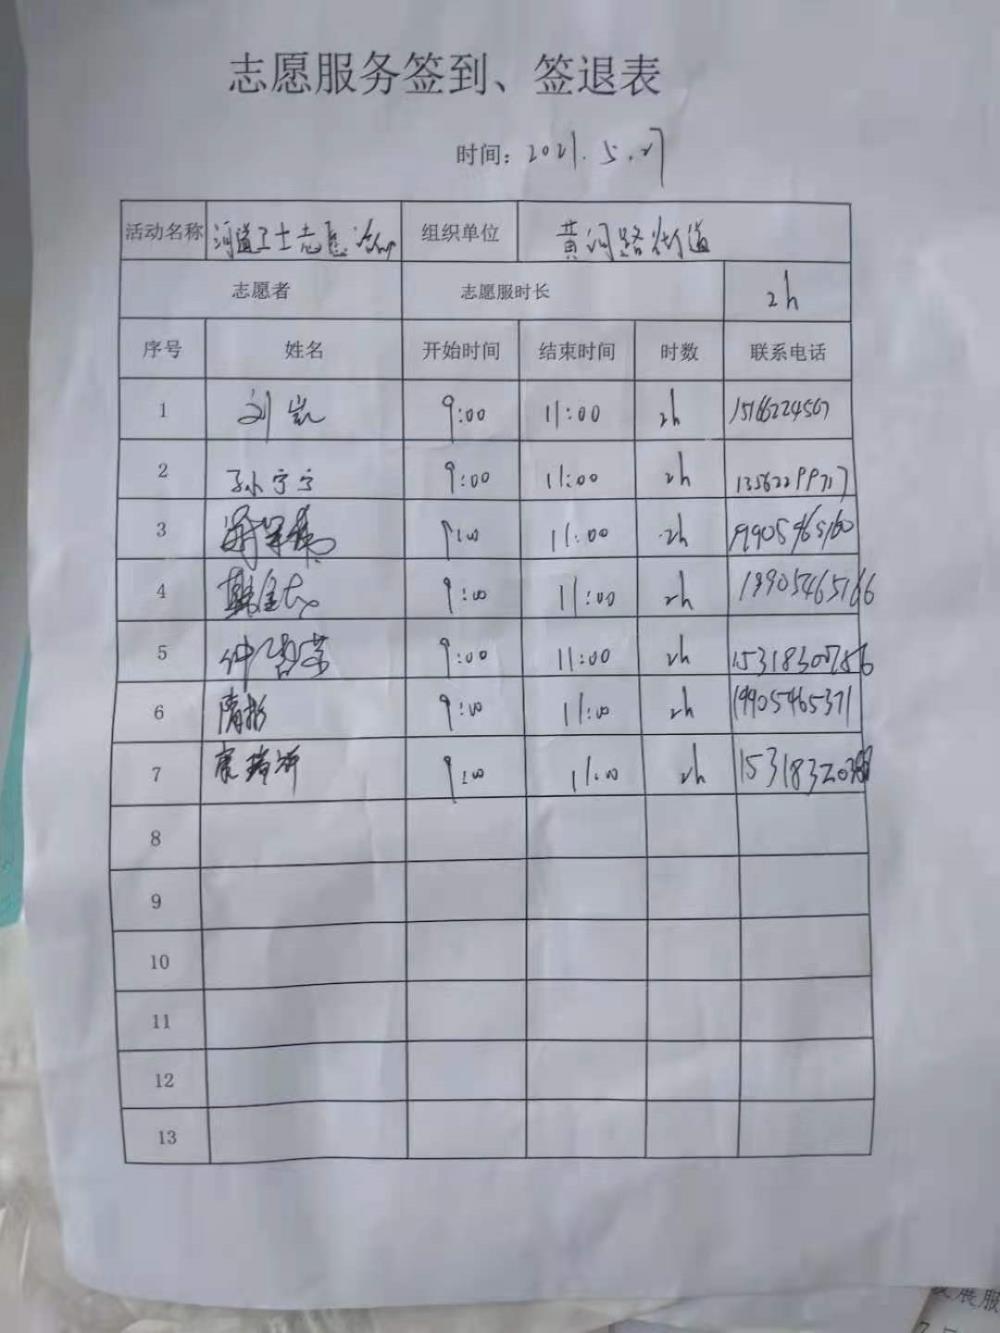 志愿服务签到、签退表
时间：2021.5.27
活动名称 河道卫士志愿活动 组织单位 黄河路街道
志愿者 志愿服时长 2h
序号 姓名 开始时间 结束时间 时数 联系电话
1 刘岩 9:00 11:00 2h 15166224567
2 孙宁宁 9:00 11:00 2h 13562299717
3 9:00 11:00 2h 19905465160
4 9:00 11:00 2h 19905465166
5 9:00 11:00 2h
6 隋彬 9:00 11:00 2h 19905465371
7 9:00 11:00 2h
8
9
10
11
12
13
发展服